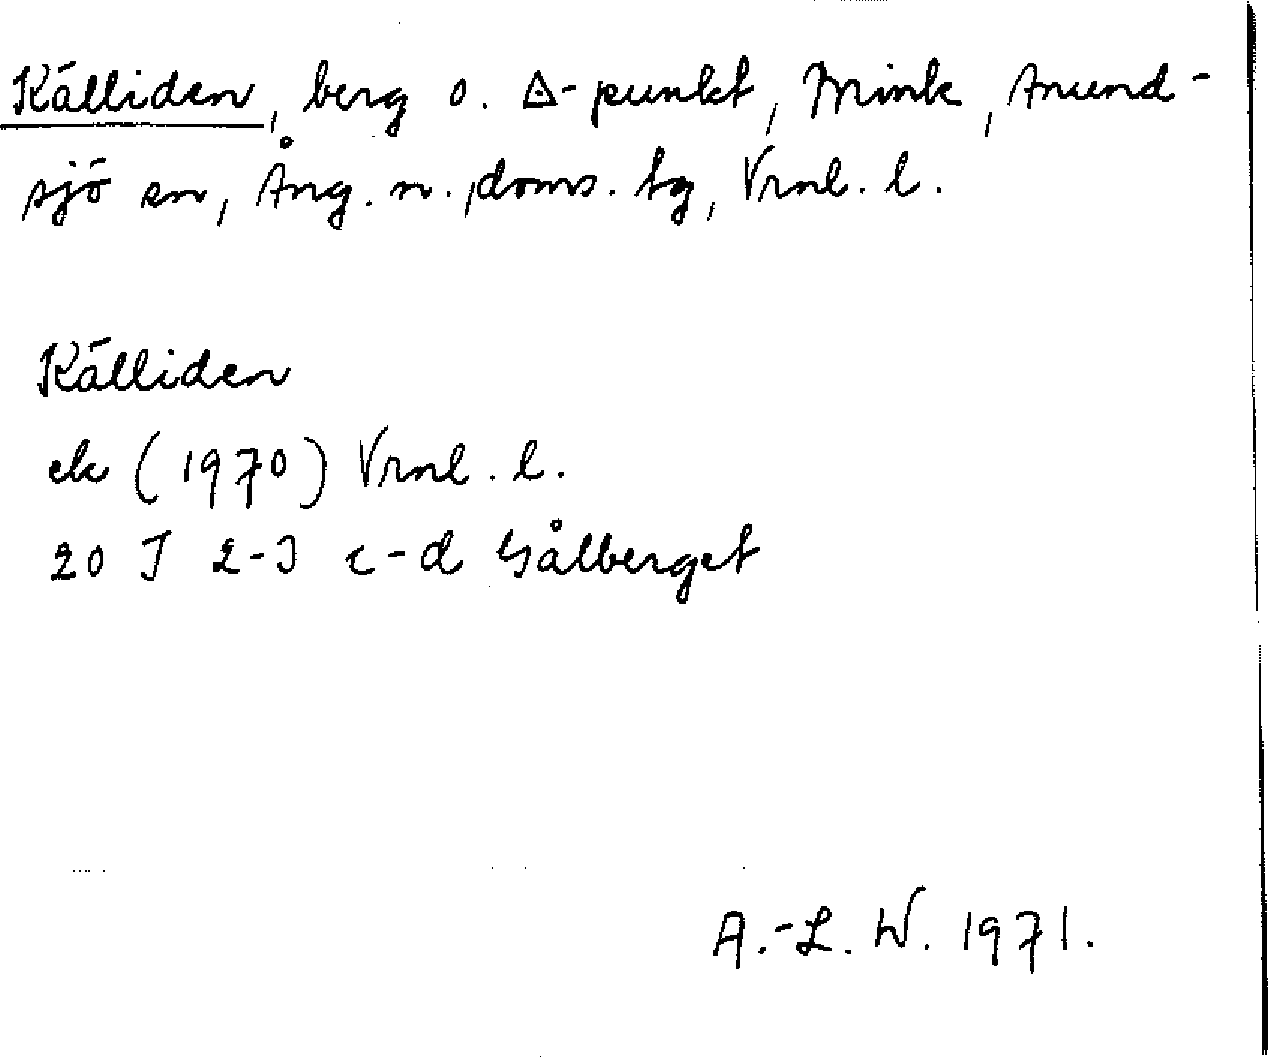 Källiden, berg o. △-punkt, Mink, Anund-
sjö sn, Ång. n. doms. tg, Vrnl. l.
Källiden
ek (1970) Vrnl. l.
20 J 2-3 c-d Gålberget
A.-L. W. 1971.